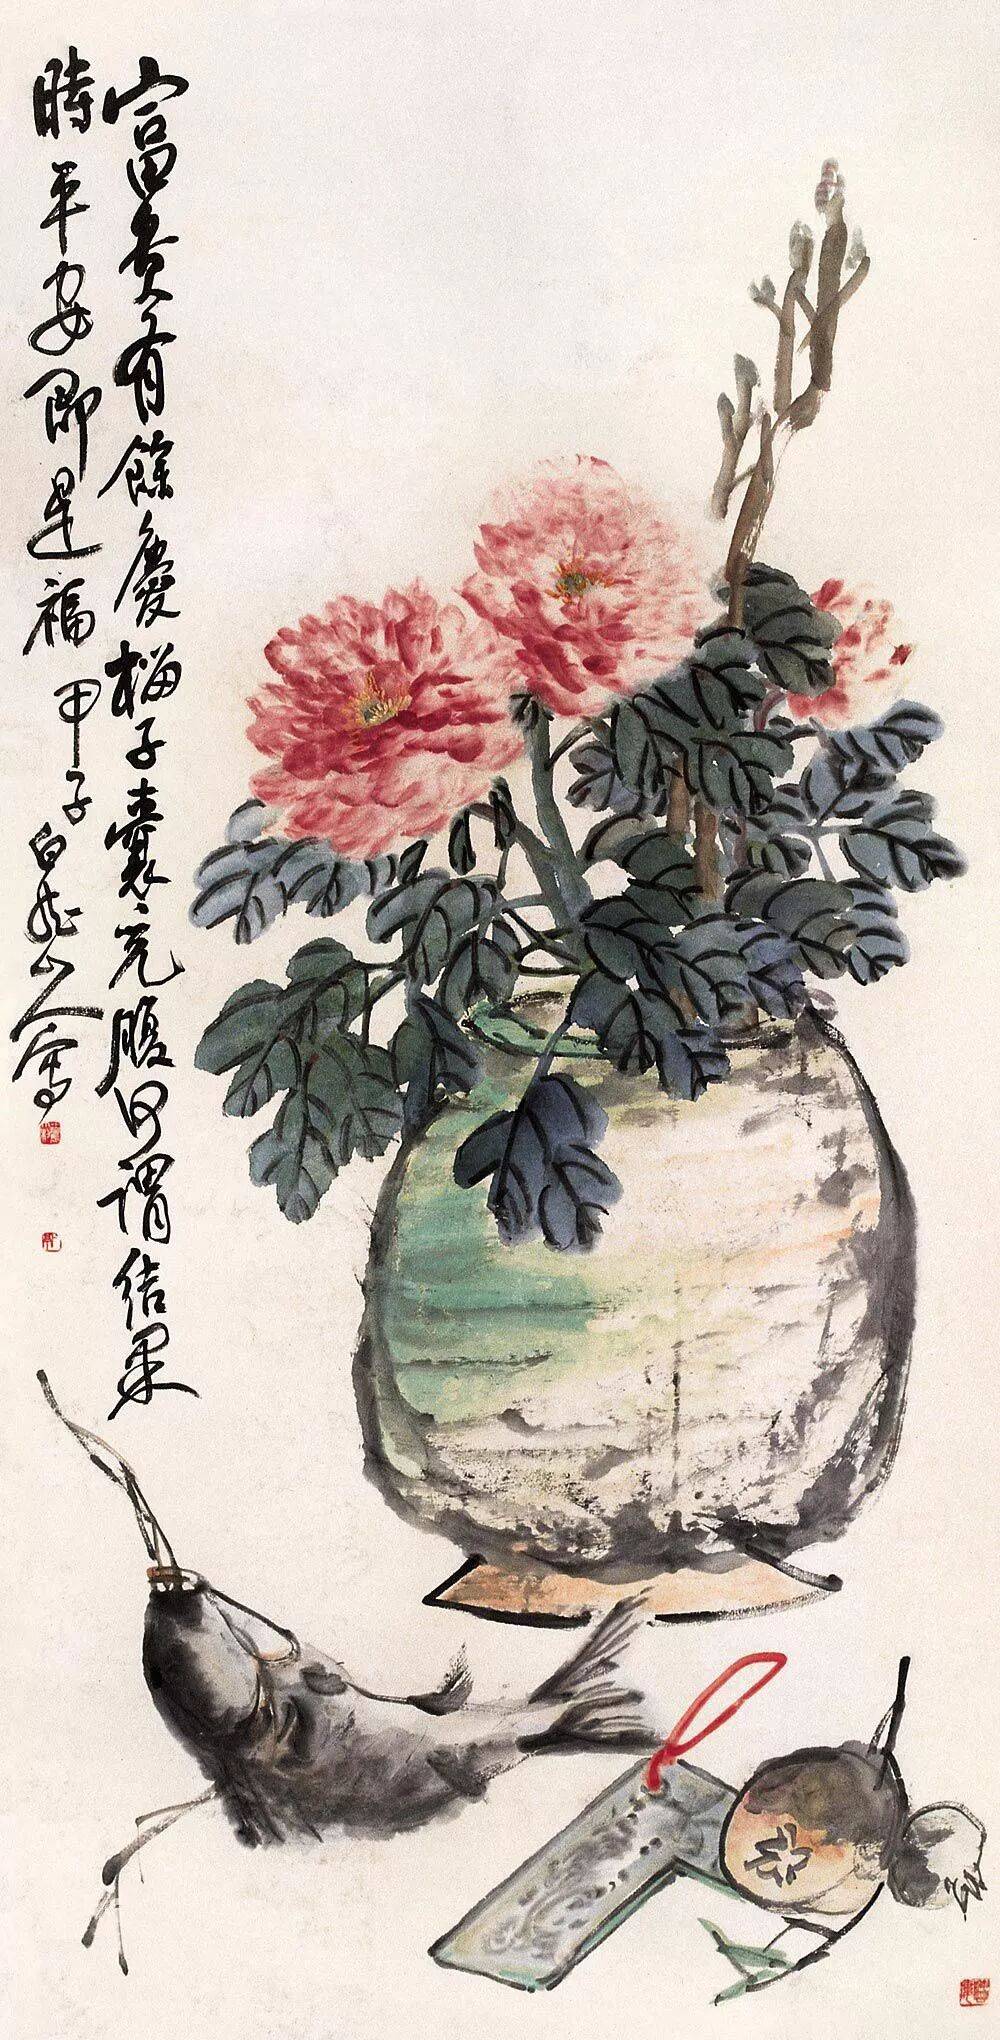 富貴有餘慶榴子囊充腹何謂結果
時平安即是福甲子白龍山人寫